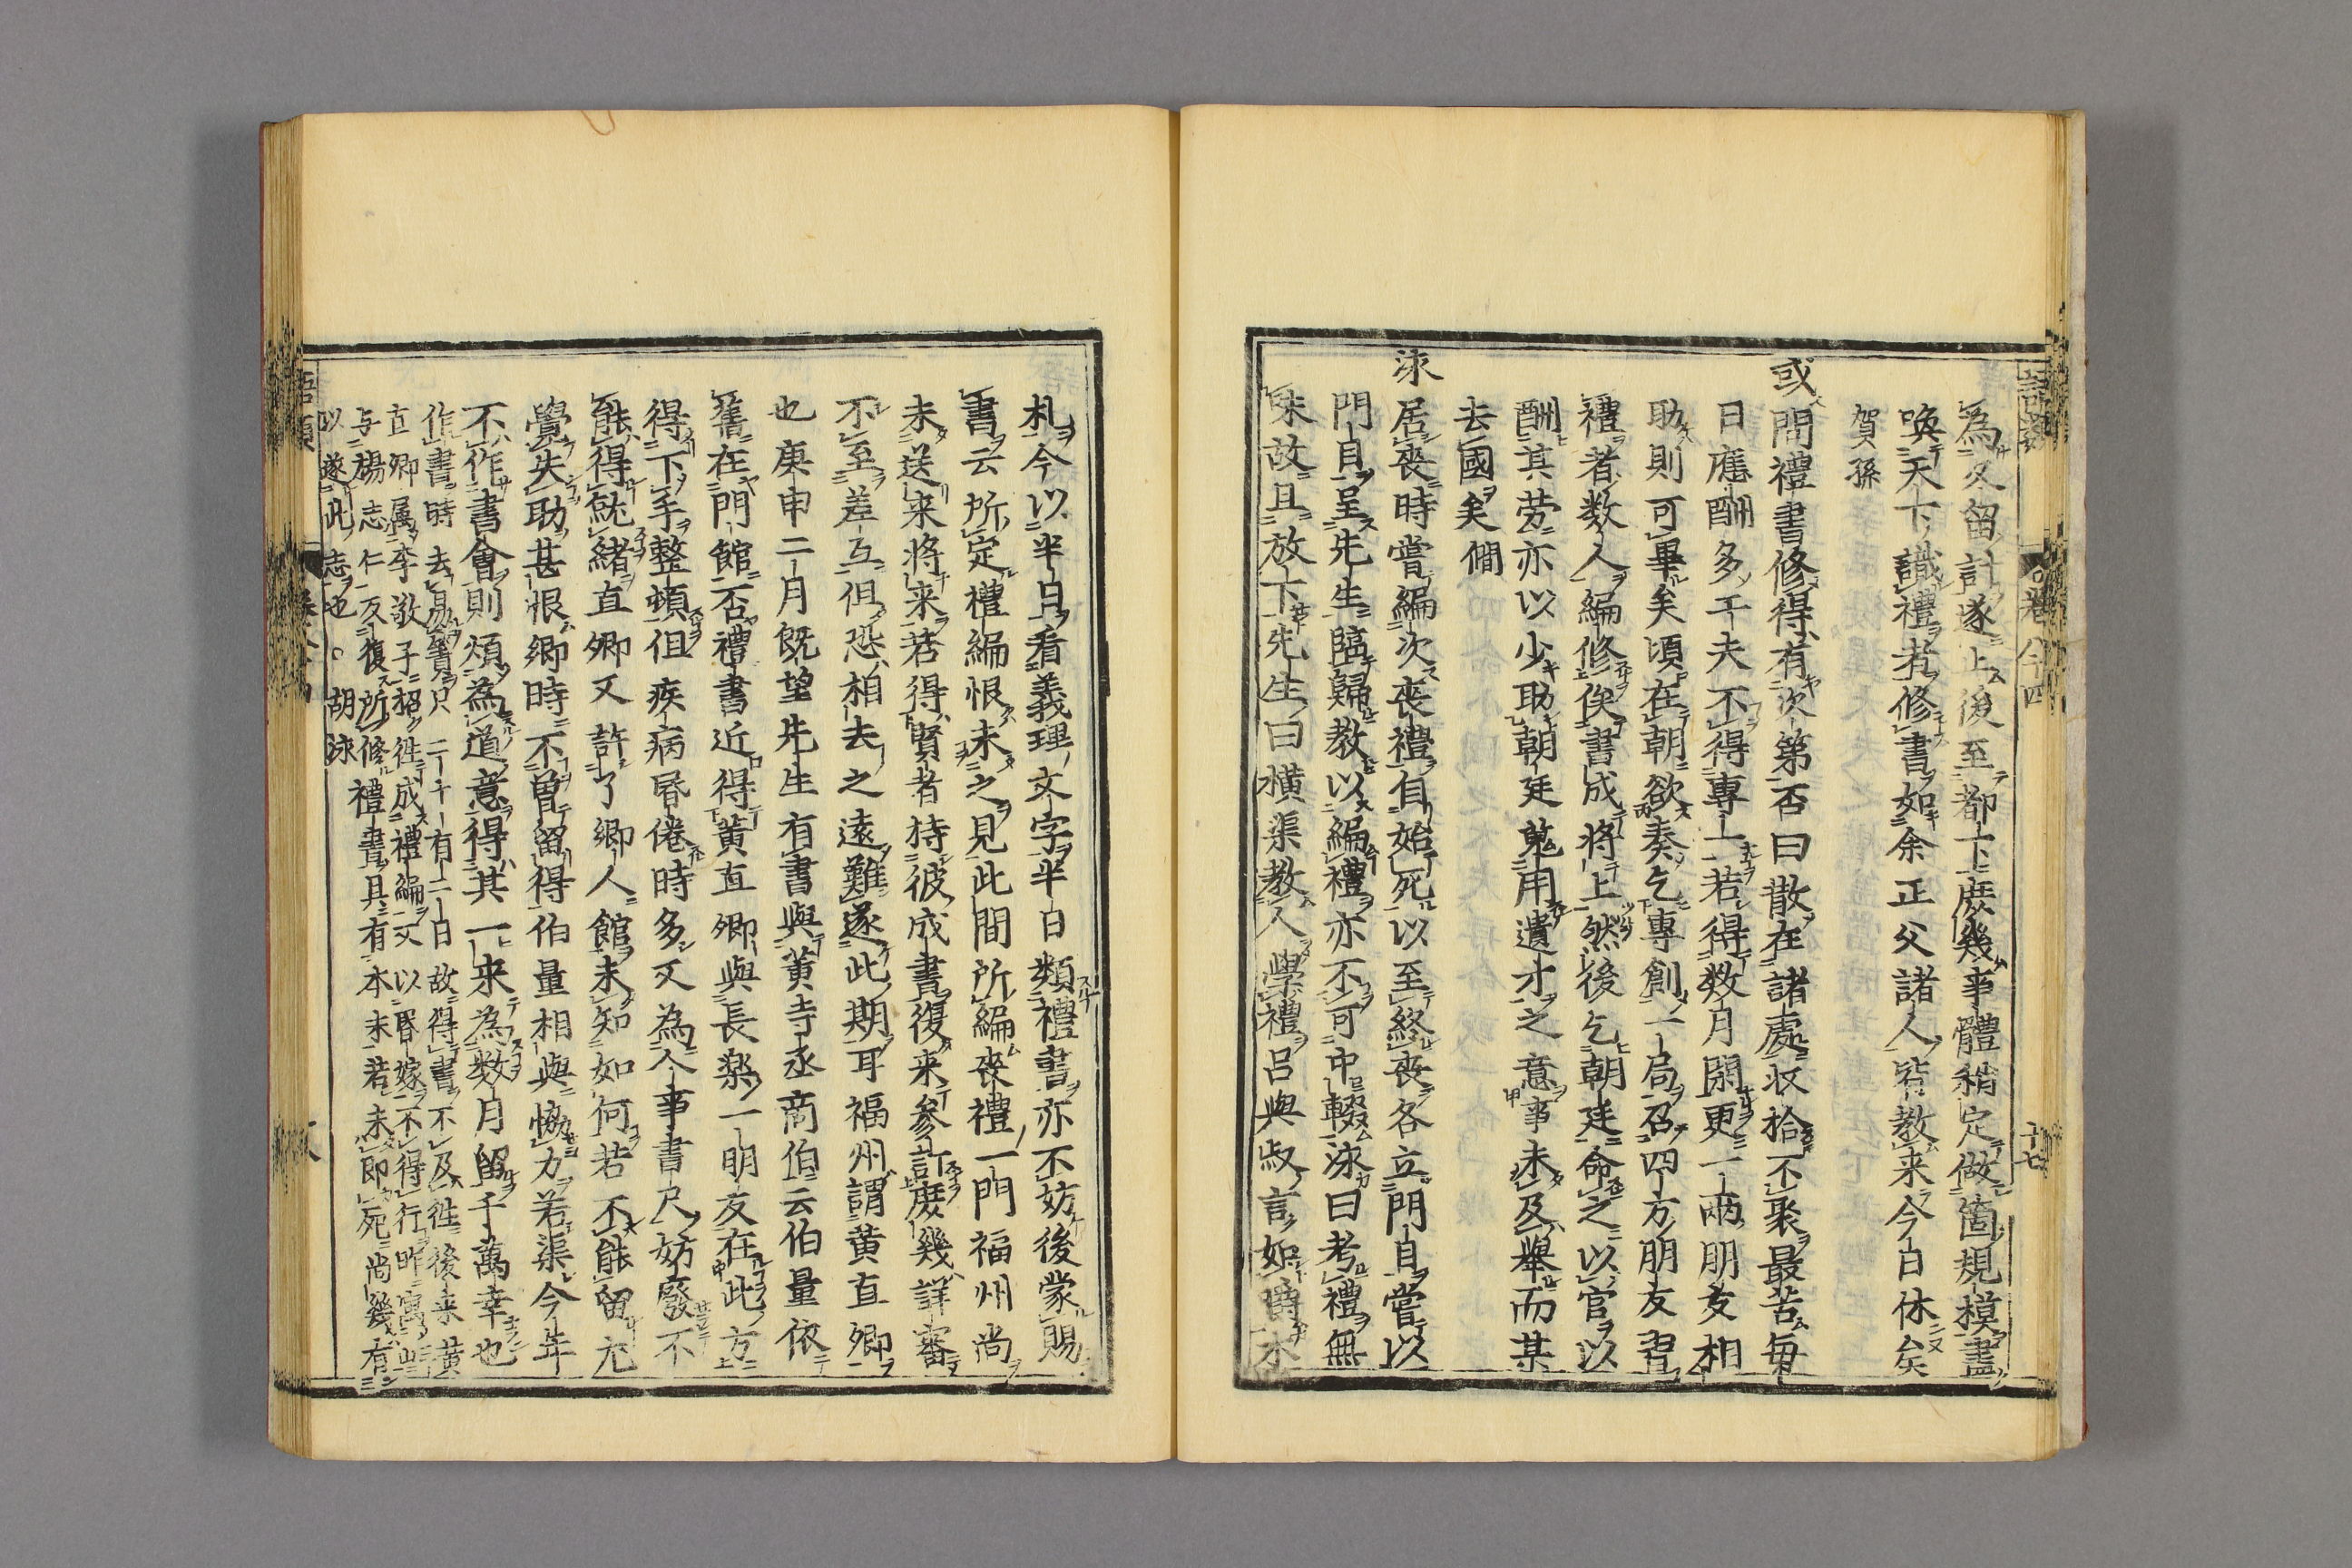 為久留計遂止後至都下庶幾事體稍定做箇規模盡
喚天下識禮者修書如余正父諸人皆教来今日休矣
賀孫
或問禮書修得有次第否曰散在諸處収拾不聚最苦毎
日應酬多工夫不得專一若得数月閑更一兩朋友相
助則可畢矣頃在朝欲奏乞專創一局召四方朋友習
禮者数人編修俟書成将上然後乞朝廷命之以官以
酬其労亦以少助朝廷蒐用遺才之意事未及舉而某
去國矣僩
泳居喪時嘗編次喪禮自始死以至終喪各立門目嘗以
門目呈先生臨歸教以編禮亦不可中輟泳曰考禮無
味故且放下先生曰横渠教人學禮呂與叔言如嚼木
札今以半日看義理文字半日類禮書亦不妨後蒙賜
書云所定禮編恨未之見此間所編喪禮一門福州尚
未送来将来若得賢者持彼成書復来参訂庶幾詳審
不至差互但恐相去之遠難遂此期耳福州謂黄直卿
也庚申二月既望先生有書與黄寺丞商伯云伯量依
舊在門館否禮書近得黄直卿與長樂一朋友在此方
得下手整頓但疾病昏倦時多又為人事書尺妨廢不
能得就緒直卿又許了郷人館未知如何若不能留尤
覺失助甚恨郷時不曽留得伯量相與恊力若渠今年
不作書會則煩為道意得其一来為数月留千萬幸也
作書時去易簀只二十有二日故得書不及徃後来黄
直卿属李敬子招徃成禮編又以昏嫁不得行昨寓三山
与楊志仁反復所修禮書具有本末若未即死尚幾有
以遂此志也 胡泳
語類
卷八十四
十七